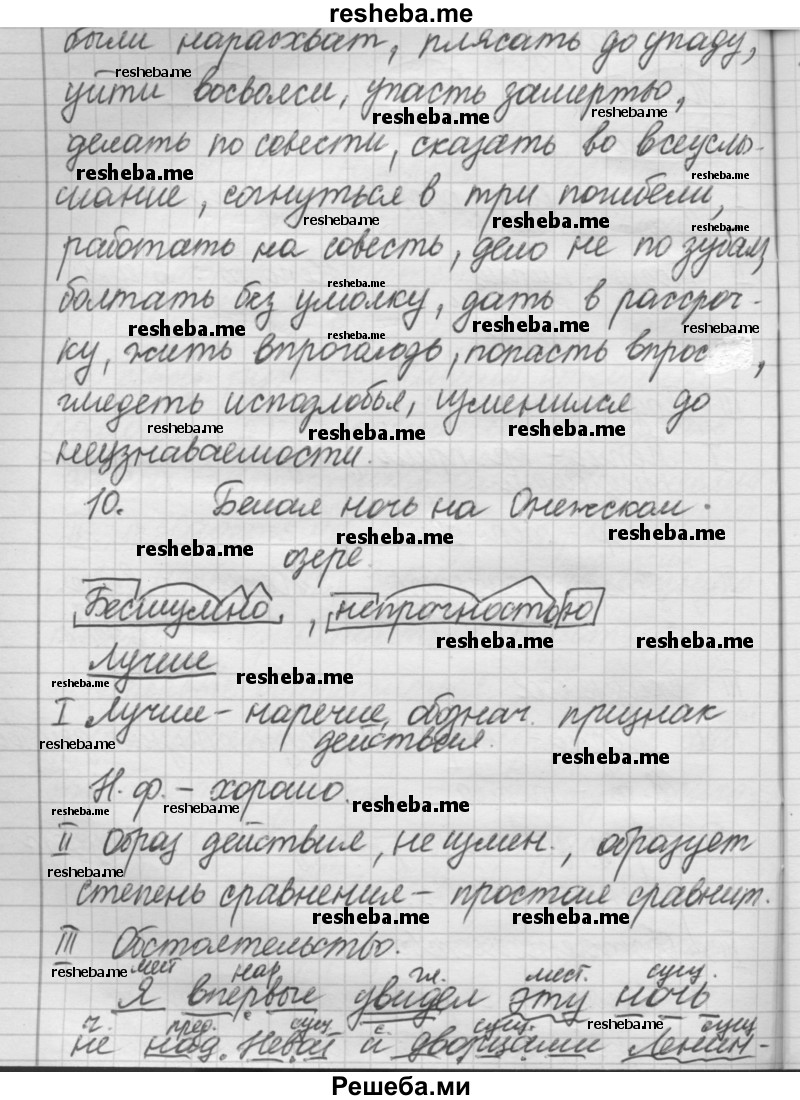 resheba.me
были нарасхват, плясать до упаду,
уйти восвояси, упасть замертво,
делать по совести, сказать во всеуслы-
шание, согнуться в три погибели,
работать на совесть, дело не по зубам
болтать без умолку, дать в рассроч-
ку, жить впроголодь, попасть впрос ,
глядеть исподлобья, изменился до
неузнаваемости.
10. Белая ночь на Онежском
озере.
Бесшумно, непрочностью
Лучше
I Лучше – наречие, обознач. признак
действия.
Н. ф. – хорошо.
II Образ действия, не измен., образует
степень сравнения – простая сравнит.
III Обстоятельство.
мест нар гл. мест. сущ.
Я впервые увидел эту ночь
ч. пред. сущ с. сущ. сущ
не над Невой и дворцами Ленин-
Решеба.ми